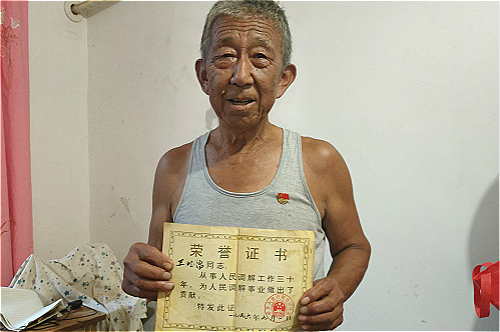 荣誉证书
同志，
从事人民调解工作三十
年，为人民调解事业做出了
贡献。
特发此证